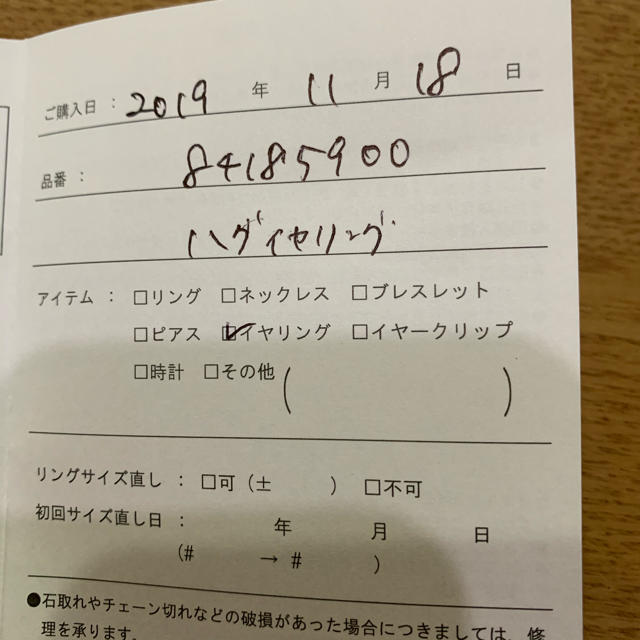 ご購入日 : 2019 年 11 月 18 日
品番 : 84185900
アイテム : □リング □ネックレス □ブレスレット
□ピアス ☑イヤリング □イヤークリップ
□時計 □その他 ( )
リングサイズ直し : □可 (± ) □不可
初回サイズ直し日 : 年 月 日
(# → # )
●石取れやチェーン切れなどの破損があった場合につきましては、修
理を承ります。